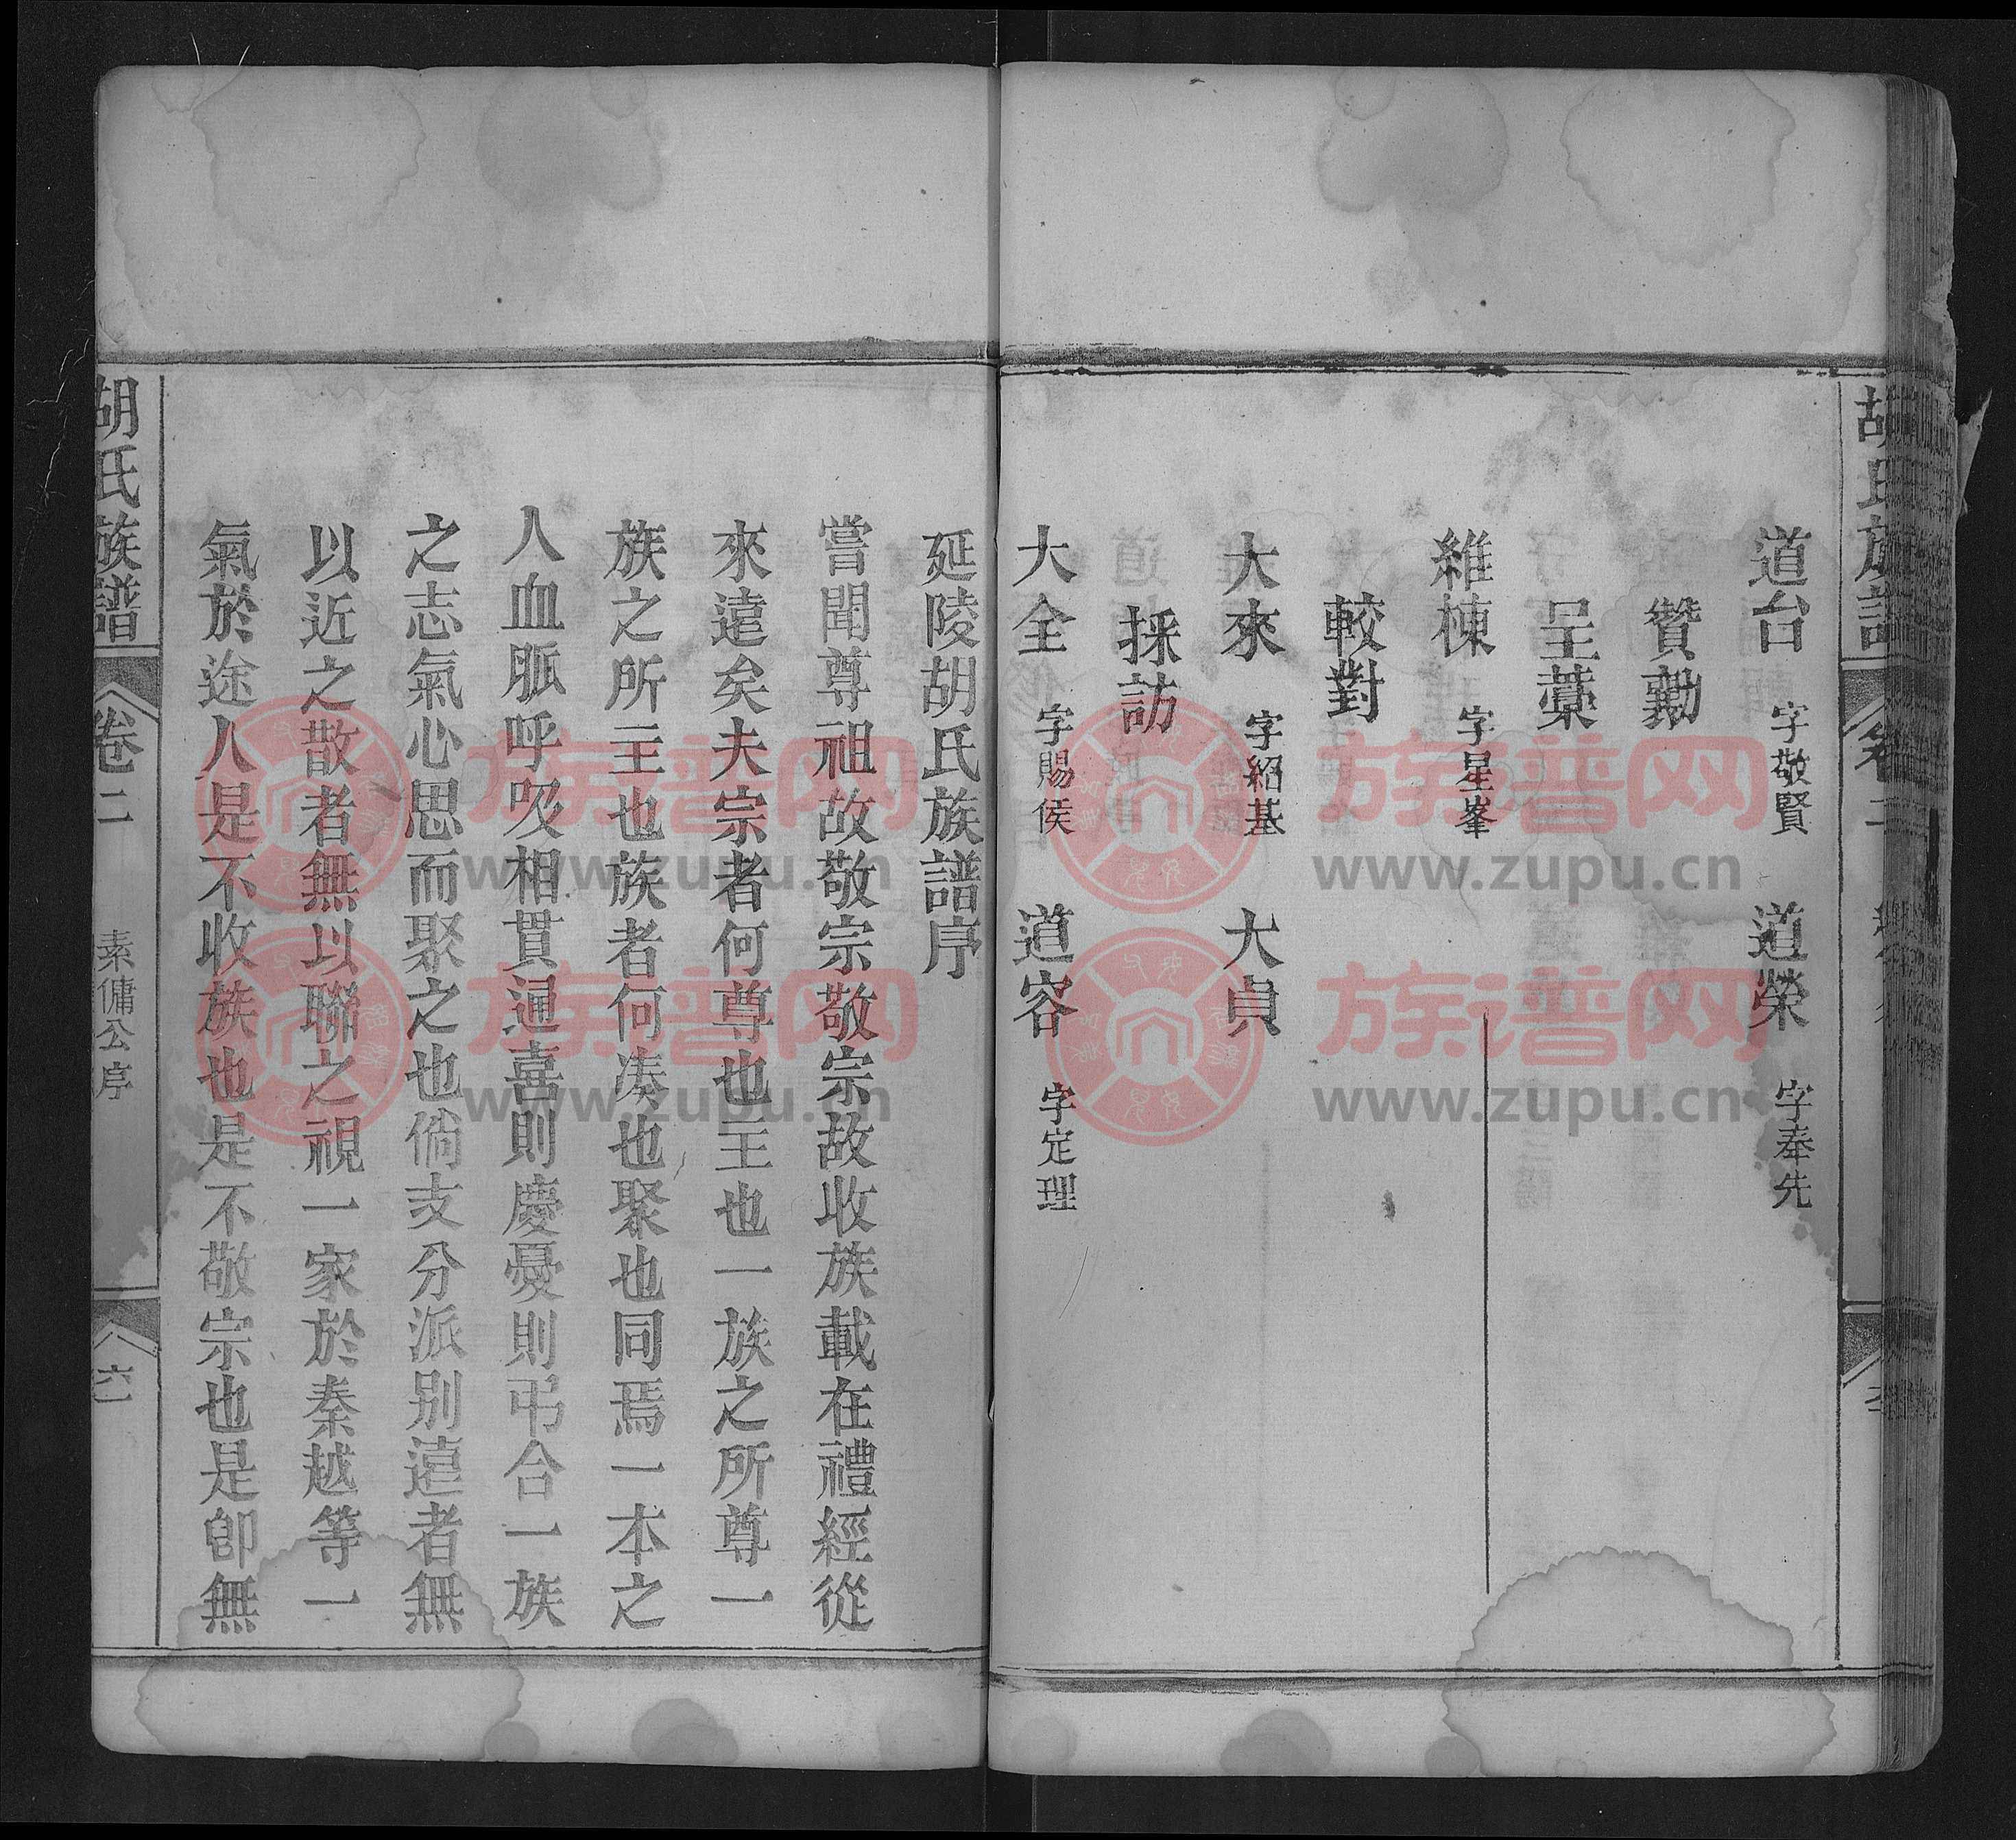 胡氏族譜
道台 字敬賢 道榮 字奉先
贊勷
呈藁
維棟 字星峯
較對
大來 字紹基 大貞
採訪
大全 字賜侯 道容 字定理
延陵胡氏族譜序
嘗聞尊祖故敬宗敬宗故收族載在禮經從
來遠矣夫宗者何尊也主也一族之所尊一
族之所主也族者何湊也聚也同焉一本之
人血脈呼吸相貫通喜則慶憂則弔合一族
之志氣心思而聚之也倘支分派別遠者無
以近之散者無以聯之視一家於秦越等一
氣於途人是不收族也是不敬宗也是卽無
胡氏族譜
卷二
素傭公序
六
族谱网
www.zupu.cn
族谱网
www.zupu.cn
族谱网
www.zupu.cn
族谱网
www.zupu.cn